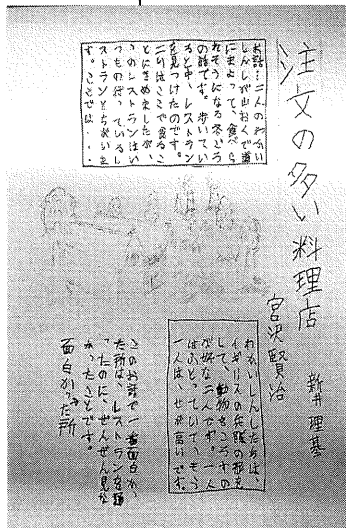 注文の多い料理店
宮沢賢治
新井理基
お話…二人のわかい
しんしが山おくで道
にまよって、食べら
れそうになる
の話です。歩いてい
ると中、レストラン
を見つけたのです。
二人はここで食るこ
とにきめましたが、
このレストランはい
つも行っているレ
ストランとちがいま
す。ここでは・・・
わかいしんしたちは、
イギリスの兵隊の形を
して、動物をころすの
が好な二人です。一人
はふとっていて、もう
一人は、せが高いです。
面白かった所
このお話で一番面白かっ
た所は、レストランを
ったのに、ぜんぜん見な
かったことです。